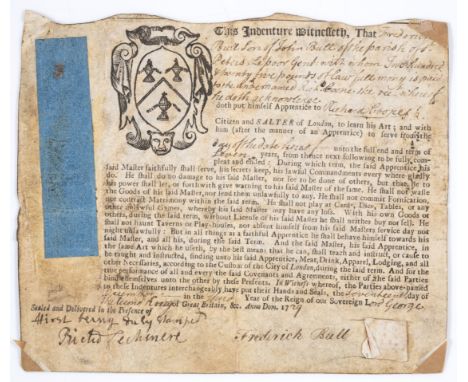 This Indenture Witnesseth, That Frederick
Bull Son of John Bull of the parish of St
Peters Le poor Gent with whom Two Hundred
& twenty five pounds of Lawfull money is paid
doth acknowledge
doth put himself Apprentice to Richard
Citizen and SALTER of London, to learn his Art; and with
him (after the manner of an Apprentice) to serve from the
day of the date hereof unto the full end and term of
Seven years, from thence next following to be fully com-
pleat and ended; During which term, the said Apprentice his
said Master faithfully shall serve, his secrets keep, his lawful Commandments every where gladly
do. He shall do no damage to his said Master, nor see to be done of others, but that he to
his power shall let, or forthwith give warning to his said Master of the same. He shall not waste
the Goods of his said Master, nor lend them unlawfully to any. He shall not commit Fornication,
nor contract Matrimony within the said term. He shall not play at Cards, Dice, Tables, or any
other unlawful Games, whereby his said Master may have any loss. With his own Goods or
others, during the said term, without Licence of his said Master he shall neither buy nor sell. He
shall not haunt Taverns or Play-houses, nor absent himself from his said Masters service day nor
night unlawfully: But in all things as a faithful Apprentice he shall behave himself towards his
said Master, and all his, during the said Term. And the said Master, his said Apprentice, in
the same Art which he useth, by the best means that he can, shall teach and instruct, or cause to
be taught and instructed, finding unto his said Apprentice, Meat, Drink, Apparel, Lodging, and all
other Necessaries, according to the Custom of the City of London, during the said term. And for the
true performance of all and every the said Covenants and Agreement, either of the said Parties
bind themselves unto the other by these Presents. In Witness whereof, the Parties above-named
to these Indentures interchangeably have put their Hands and Seals, the Seventeenth day of
in the Year of the Reign of our Sovereign Lord George
King of Great Britain, &c. Anno Dom. 1729
Sealed and Delivered in the Presence of
first being duly stampt
Frederick Bull